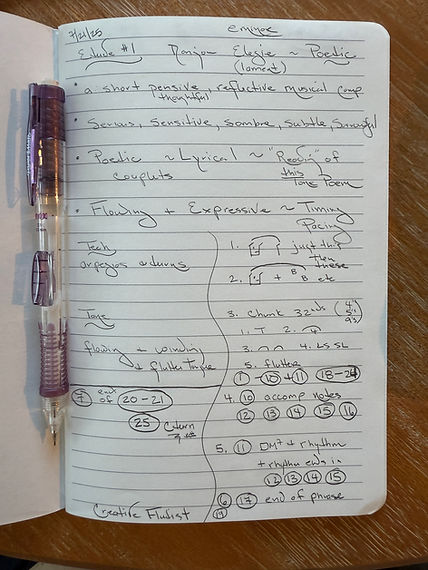 7/21/25
eminor
Etude #1 Elegie ~ Poetic
(lament)
• a short pensive, reflective musical comp
thoughtful
• Serious, sensitive, sombre, subtle,
• Poetic ~ Lyrical ~ "Reading" of
couplets this
Tone Poem
• Flowing + Expressive ~ Timing
Pacing
Tech
arpegios + turns
1. just this
then
these
2. + B B etc
Tone
flowing + winding
+ flutter tongue
3. Chunk 32nds
1. T 2.
3. 4. LS SL
5. flutter
1 - 10 + 11 18-24
7 end
of 20-21
25
4. 10 accomp notes
12 13 14 15 16
5. 11 DM7 + rhythm
+ rhythm ends in
12 13 14 15
6 17 end of phrase
19
Creative Flutist